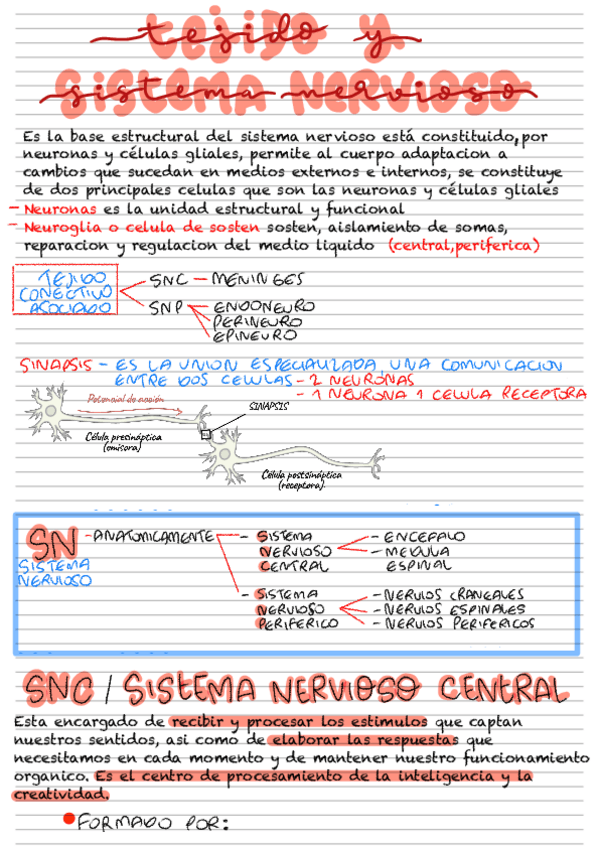 tejido y
sistema nervioso
Es la base estructural del sistema nervioso está constituido,por
neuronas y células gliales, permite al cuerpo adaptacion a
cambios que sucedan en medios externos e internos, se constituye
de dos principales celulas que son las neuronas y células gliales
- Neuronas es la unidad estructural y funcional
- Neuroglia o celula de sosten sosten, aislamiento de somas,
reparacion y regulacion del medio liquido (central,periferica)
TEJIDO
CONECTIVO
ASOCIADO
SNC - MENINGES
SNP - ENDONEURO
PERINEURO
EPINEURO
SINAPSIS - ES LA UNION ESPECIALIZADA, UNA COMUNICACION
ENTRE DOS CELULAS - 2 NEURONAS
- 1 NEURONA 1 CELULA RECEPTORA
Potencial de acción
SINAPSIS
Célula presináptica
(emisora)
Célula postsináptica
(receptora)
SN
SISTEMA
NERVIOSO
- ANATOMICAMENTE
- SISTEMA
NERVIOSO
CENTRAL
- ENCEFALO
- MEDULA
ESPINAL
- SISTEMA
NERVIOSO
PERIFERICO
- NERVIOS CRANEALES
- NERVIOS ESPINALES
- NERVIOS PERIFERICOS
SNC / SISTEMA NERVIOSO CENTRAL
Esta encargado de recibir y procesar los estimulos que captan
nuestros sentidos, asi como de elaborar las respuestas que
necesitamos en cada momento y de mantener nuestro funcionamiento
organico. Es el centro de procesamiento de la inteligencia y la
creatividad.
FORMADO POR: